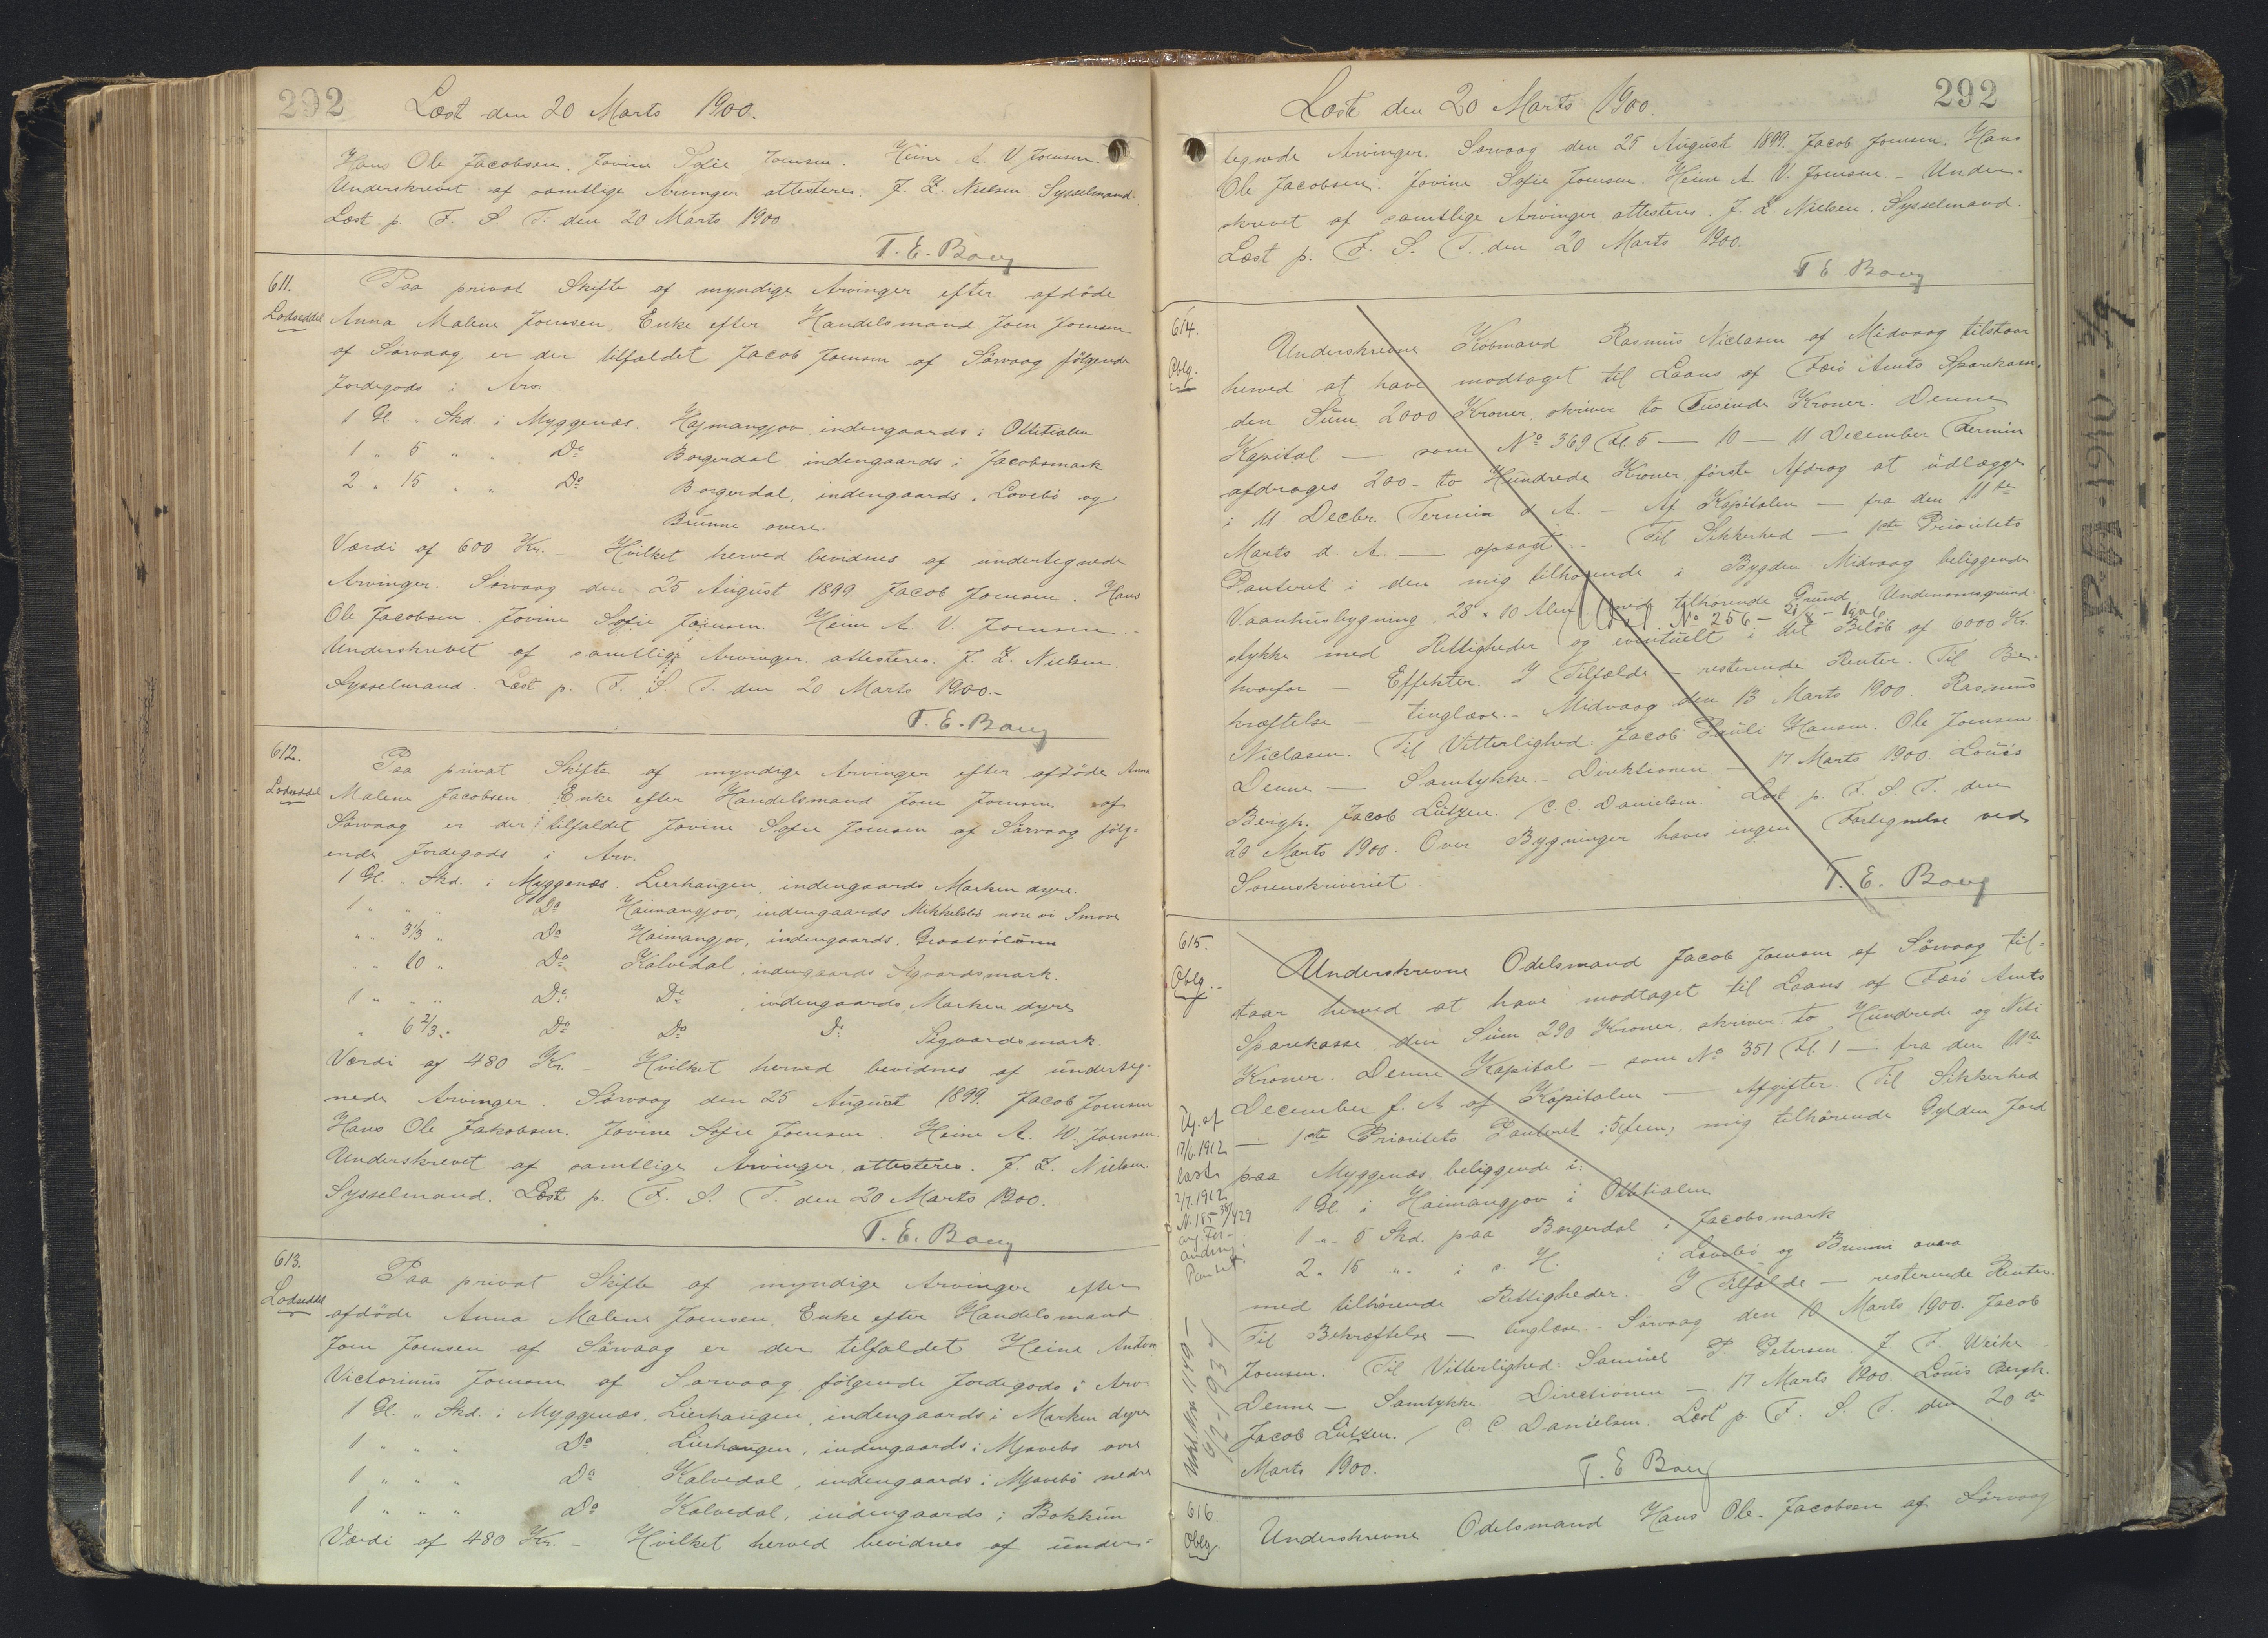 292 Læst den 20 Marts 1900.
Hans Ole Jacobsen. Jovine Sofie Joensen. Heine A. V. Joensen.
Underskrevet af samtlige Arvinger attesteres. J. Z. Nielsen Sysselmand.
Læst p. F. S. T. den 20 Marts 1900
T. E. Barg
611. Paa privat Skifte af myndige Arvinger efter afdöde
Lodseddel Anna Malene Joensen, Enke efter Handelsmand Joen Joensen
af Sörvaag er der tilfaldet Jacob Joensen af Sörvaag fölgende
Jordegods i Arv.
1 Gl. " Skd. i Myggenæs. Hajmangjov indengaards i Ottitialen
1 " 5 " " Do Borgerdal indengaards i Jacobsmark
2 " 15 " " Do Borgerdal, indengaards, Lovebö og
Brunne overe.
Værdi af 600 Kr. – Hvilket herved bevidnes af undertegnede
Arvinger. Sörvaag den 25 August 1899. Jacob Joensen. Hans
Ole Jacobsen. Jovine Sofie Joensen. Heine A. V. Joensen. –
Underskrevet af samtlige Arvinger attesteres. J. Z. Nielsen.
Sysselmand. Læst p. F. S. T. den 20 Marts 1900. –
T. E. Barg
612. Paa privat Skifte af myndige Arvinger efter afdöde Anne
Lodseddel Malene Jacobsen Enke efter Handelsmand Joen Joensen af
Sörvaag er der tilfaldet Jovine Sofie Joensen af Sörvaag fölg-
ende Jordegods i Arv.
1 Gl. " Skd. i Myggenæs. Lierhaugen, indengaards Marken dyre.
1 " " " Do Haimangjov, indengaards Mikkelsbö nore vi Smove
" " 3 1/3 " Do Haimangjov, indengaards,
" " 10 " Do Kalvedal, indengaards Sigvardsmark.
1 " " " Do Do indengaards, Marken dyre
" 6 2/3 " Do Do Do Sigvardsmark.
Værdi af 480 Kr. – Hvilket herved bevidnes af underteg-
nede Arvinger. Sörvaag den 25 August 1899. Jacob Joensen
Hans Ole Jakobsen. Jovine Sofie Joensen. Heine A. W. Joensen.
Underskrevet af samtlige Arvinger attesteres. J. Z. Nielsen.
Sysselmand. Læst p. F. S. T. den 20 Marts 1900.
T. E. Barg
613. Paa privat Skifte af myndige Arvinger efter
Lodseddel afdöde Anna Malene Joensen, Enke efter Handelsmand
Joen Joensen af Sörvaag er der tilfaldet Heine Anton
Victorinus Joensen af Sörvaag fölgende Jordegods i Arv
1 Gl. " Skd. i Myggenæs, Lierhaugen, indengaards i Marken dyre
1 " " " Do Lierhaugen, indengaards i Mjavebö ovre
1 " " " Do Kalvedal, indengaards i Mjavebö nedre
1 " " " Do Kalvedal, indengaards i Bokkun
Værdi af 480 Kr. – Hvilket herved bevidnes af under-
Læst den 20 Marts 1900. 292
tegnede Arvinger. Sörvaag den 25 August 1899. Jacob Joensen. Hans
Ole Jacobsen. Jovine Sofie Joensen. Heine A. V. Joensen. – Under-
skrevet af samtlige Arvinger attesteres. J. Z. Nielsen. Sysselmand.
Læst p. F. S. T. den 20 Marts 1900.
T E Barg
614. Underskrevne Köbmand Rasmus Niclasen af Midvaag tilstaar
Oblg. herved at have modtaget til Laans af Færö Amts Sparekasse,
den Sum 2000 Kroner, skriver to Tusinde Kroner. Denne
Kapital — som No 369 Fl. 5 — 10 — 11 December Termin
afdrages 200 – to Hundrede Kroner förste Afdrag at udlægge
i 11 Decbr. Termin d. A. – Af Kapitalen — fra den 11te
Marts d. A. — opsagt – Til Sikkerhed — 1ste Prioritets
Panteret i den mig tilhörende i Bygden Midvaag beliggende
Vaanhusbygning 28 x 10 Alen med tilhörende Grund, Undenomsgrund-
No 256 –
stykke med Rettigheder og eventuelt i det Belöb af 6000 Kr.
hvorfor — Effekter. I Tilfælde — resterende Renter. Til Be-
kræftelse — tinglæse. – Midvaag den 13 Marts 1900. Rasmus
Niclasen. Til Vitterlighed: Jacob Pauli Hansen. Ole Joensen.
Denne — Samtykke. – Direktionen — 17 Marts 1900. Louis
Bergh. Jacob Lützen. / C. C. Danielsen. Læst p. F. S. T. den
20 Marts 1900. Over Bygninger haves ingen Fortegnelse ved
Sorenskriveriet
T. E. Barg
615. Underskrevne Odelsmand Jacob Joensen af Sörvaag til-
Oblg. staar herved at have modtaget til Laans af Færö Amts
Sparekasse den Sum 290 Kroner, skriver to Hundrede og Niti
Kroner. Denne Kapital — som No 351 Fl. 1 — fra den 11te
December f. A. af Kapitalen — Afgifter. Til Sikkerhed
— 1ste Prioritets Panteret i 5, fem, mig tilhörende Gylden Jord
paa Myggenæs beliggende i:
1 Gl. i Haimangjov i Ottitialen
1 " " 5 Skd. paa Borgerdal i Jacobsmark
2 " 15 " " i Lovebö og Brunni overe
med tilhörende Rettigheder. – I Tilfælde — resterende Renter.
Til Bekræftelse — tinglæse. – Sörvaag den 10 Marts 1900. Jacob
Joensen. Til Vitterlighed: Samuel P. Petersen. J. F. Weihe
Denne — Samtykke. Directionen — 17 Marts 1900. Louis Bergh.
Jacob Lutzen. / C. C. Danielsen. Læst p. F. S. T. den 20de
Marts 1900.
T. E Barg
616. Underskrevne Odelsmand Hans Ole Jacobsen af Sörvaag
Oblg.